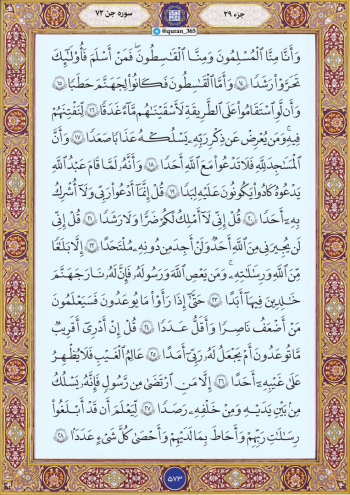 جزء ۲۹
@quran_365
سوره جن ۷۲
وَأَنَّا مِنَّا ٱلْمُسْلِمُونَ وَمِنَّا ٱلْقَـٰسِطُونَ ۖ فَمَنْ أَسْلَمَ فَأُو۟لَـٰٓئِكَ
تَحَرَّوْا۟ رَشَدًا ﴿١٤﴾ وَأَمَّا ٱلْقَـٰسِطُونَ فَكَانُوا۟ لِجَهَنَّمَ حَطَبًا ﴿١٥﴾
وَأَن لَّوِ ٱسْتَقَـٰمُوا۟ عَلَى ٱلطَّرِيقَةِ لَأَسْقَيْنَـٰهُم مَّآءً غَدَقًا ﴿١٦﴾ لِّنَفْتِنَهُمْ
فِيهِ ۚ وَمَن يُعْرِضْ عَن ذِكْرِ رَبِّهِۦ يَسْلُكْهُ عَذَابًا صَعَدًا ﴿١٧﴾ وَأَنَّ
ٱلْمَسَـٰجِدَ لِلَّهِ فَلَا تَدْعُوا۟ مَعَ ٱللَّهِ أَحَدًا ﴿١٨﴾ وَأَنَّهُۥ لَمَّا قَامَ عَبْدُ ٱللَّهِ
يَدْعُوهُ كَادُوا۟ يَكُونُونَ عَلَيْهِ لِبَدًا ﴿١٩﴾ قُلْ إِنَّمَآ أَدْعُوا۟ رَبِّى وَلَآ أُشْرِكُ
بِهِۦٓ أَحَدًا ﴿٢٠﴾ قُلْ إِنِّى لَآ أَمْلِكُ لَكُمْ ضَرًّا وَلَا رَشَدًا ﴿٢١﴾ قُلْ إِنِّى
لَن يُجِيرَنِى مِنَ ٱللَّهِ أَحَدٌ وَلَنْ أَجِدَ مِن دُونِهِۦ مُلْتَحَدًا ﴿٢٢﴾ إِلَّا بَلَـٰغًا
مِّنَ ٱللَّهِ وَرِسَـٰلَـٰتِهِۦ ۚ وَمَن يَعْصِ ٱللَّهَ وَرَسُولَهُۥ فَإِنَّ لَهُۥ نَارَ جَهَنَّمَ
خَـٰلِدِينَ فِيهَآ أَبَدًا ﴿٢٣﴾ حَتَّىٰٓ إِذَا رَأَوْا۟ مَا يُوعَدُونَ فَسَيَعْلَمُونَ
مَنْ أَضْعَفُ نَاصِرًا وَأَقَلُّ عَدَدًا ﴿٢٤﴾ قُلْ إِنْ أَدْرِىٓ أَقَرِيبٌ
مَّا تُوعَدُونَ أَمْ يَجْعَلُ لَهُۥ رَبِّىٓ أَمَدًا ﴿٢٥﴾ عَـٰلِمُ ٱلْغَيْبِ فَلَا يُظْهِرُ
عَلَىٰ غَيْبِهِۦٓ أَحَدًا ﴿٢٦﴾ إِلَّا مَنِ ٱرْتَضَىٰ مِن رَّسُولٍ فَإِنَّهُۥ يَسْلُكُ
مِنۢ بَيْنِ يَدَيْهِ وَمِنْ خَلْفِهِۦ رَصَدًا ﴿٢٧﴾ لِّيَعْلَمَ أَن قَدْ أَبْلَغُوا۟
رِسَـٰلَـٰتِ رَبِّهِمْ وَأَحَاطَ بِمَا لَدَيْهِمْ وَأَحْصَىٰ كُلَّ شَىْءٍ عَدَدًۢا ﴿٢٨﴾
۵۷۳